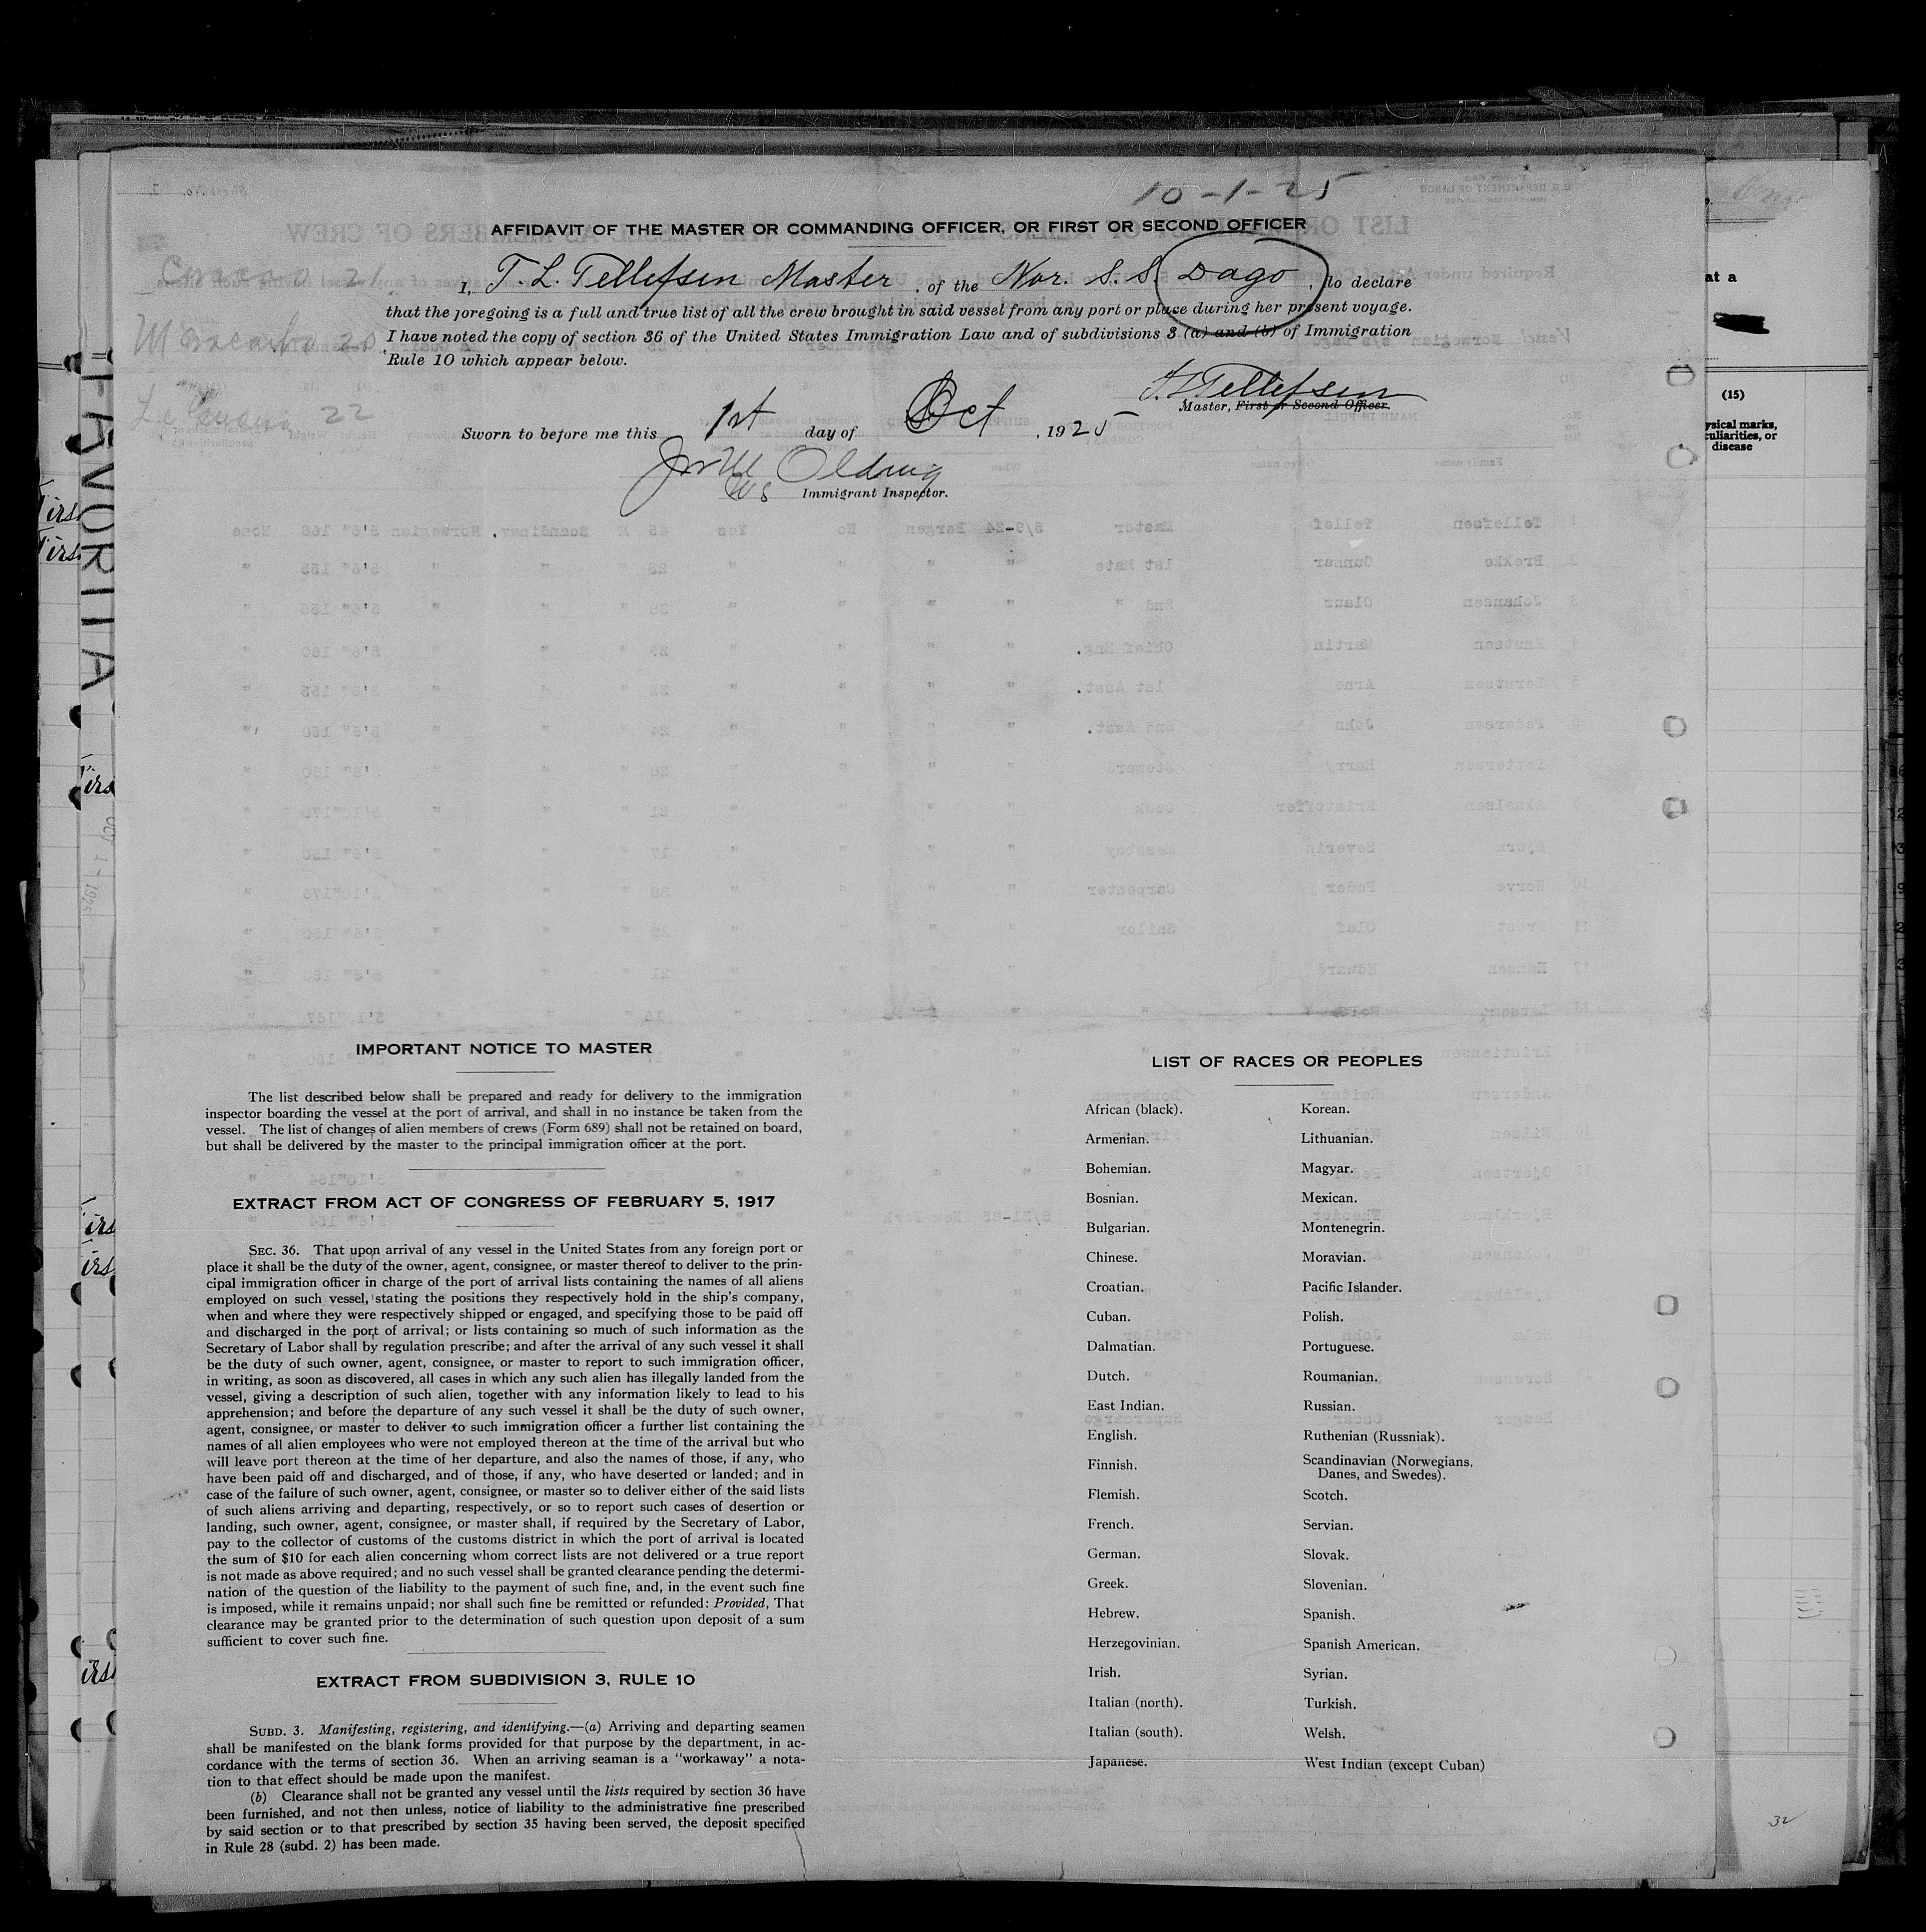 10-1-25
AFFIDAVIT OF THE MASTER OR COMMANDING OFFICER, OR FIRST OR SECOND OFFICER
I, T. L. Tellefsen Master, of the Nor. S. S. Dago, do declare
that the foregoing is a full and true list of all the crew brought in said vessel from any port or place during her present voyage.
I have noted the copy of section 36 of the United States Immigration Law and of subdivisions 3 (a) and (b) of Immigration
Rule 10 which appear below.
T. L. Tellefsen
Master, First or Second Officer.
Sworn to before me this 1st day of Oct, 1925
Immigrant Inspector.
Curacao 21
Maracaibo 20
22
FAVORITA
OCT 1 - 1925
at a
(15)
ysical marks,
culiarities, or
disease
IMPORTANT NOTICE TO MASTER
The list described below shall be prepared and ready for delivery to the immigration
inspector boarding the vessel at the port of arrival, and shall in no instance be taken from the
vessel. The list of changes of alien members of crews (Form 689) shall not be retained on board,
but shall be delivered by the master to the principal immigration officer at the port.
EXTRACT FROM ACT OF CONGRESS OF FEBRUARY 5, 1917
SEC. 36. That upon arrival of any vessel in the United States from any foreign port or
place it shall be the duty of the owner, agent, consignee, or master thereof to deliver to the prin-
cipal immigration officer in charge of the port of arrival lists containing the names of all aliens
employed on such vessel, stating the positions they respectively hold in the ship's company,
when and where they were respectively shipped or engaged, and specifying those to be paid off
and discharged in the port of arrival; or lists containing so much of such information as the
Secretary of Labor shall by regulation prescribe; and after the arrival of any such vessel it shall
be the duty of such owner, agent, consignee, or master to report to such immigration officer,
in writing, as soon as discovered, all cases in which any such alien has illegally landed from the
vessel, giving a description of such alien, together with any information likely to lead to his
apprehension; and before the departure of any such vessel it shall be the duty of such owner,
agent, consignee, or master to deliver to such immigration officer a further list containing the
names of all alien employees who were not employed thereon at the time of the arrival but who
will leave port thereon at the time of her departure, and also the names of those, if any, who
have been paid off and discharged, and of those, if any, who have deserted or landed; and in
case of the failure of such owner, agent, consignee, or master so to deliver either of the said lists
of such aliens arriving and departing, respectively, or so to report such cases of desertion or
landing, such owner, agent, consignee, or master shall, if required by the Secretary of Labor,
pay to the collector of customs of the customs district in which the port of arrival is located
the sum of $10 for each alien concerning whom correct lists are not delivered or a true report
is not made as above required; and no such vessel shall be granted clearance pending the determi-
nation of the question of the liability to the payment of such fine, and, in the event such fine
is imposed, while it remains unpaid; nor shall such fine be remitted or refunded: Provided, That
clearance may be granted prior to the determination of such question upon deposit of a sum
sufficient to cover such fine.
EXTRACT FROM SUBDIVISION 3, RULE 10
SUBD. 3. Manifesting, registering, and identifying.—(a) Arriving and departing seamen
shall be manifested on the blank forms provided for that purpose by the department, in ac-
cordance with the terms of section 36. When an arriving seaman is a "workaway" a nota-
tion to that effect should be made upon the manifest.
(b) Clearance shall not be granted any vessel until the lists required by section 36 have
been furnished, and not then unless, notice of liability to the administrative fine prescribed
by said section or to that prescribed by section 35 having been served, the deposit specified
in Rule 28 (subd. 2) has been made.
LIST OF RACES OR PEOPLES
African (black).
Armenian.
Bohemian.
Bosnian.
Bulgarian.
Chinese.
Croatian.
Cuban.
Dalmatian.
Dutch.
East Indian.
English.
Finnish.
Flemish.
French.
German.
Greek.
Hebrew.
Herzegovinian.
Irish.
Italian (north).
Italian (south).
Japanese.
Korean.
Lithuanian.
Magyar.
Mexican.
Montenegrin.
Moravian.
Pacific Islander.
Polish.
Portuguese.
Roumanian.
Russian.
Ruthenian (Russniak).
Scandinavian (Norwegians,
Danes, and Swedes).
Scotch.
Servian.
Slovak.
Slovenian.
Spanish.
Spanish American.
Syrian.
Turkish.
Welsh.
West Indian (except Cuban)
32